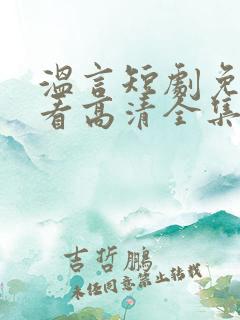 温言短劇免
看高清全集
吉哲鵬
未经同意禁止转载